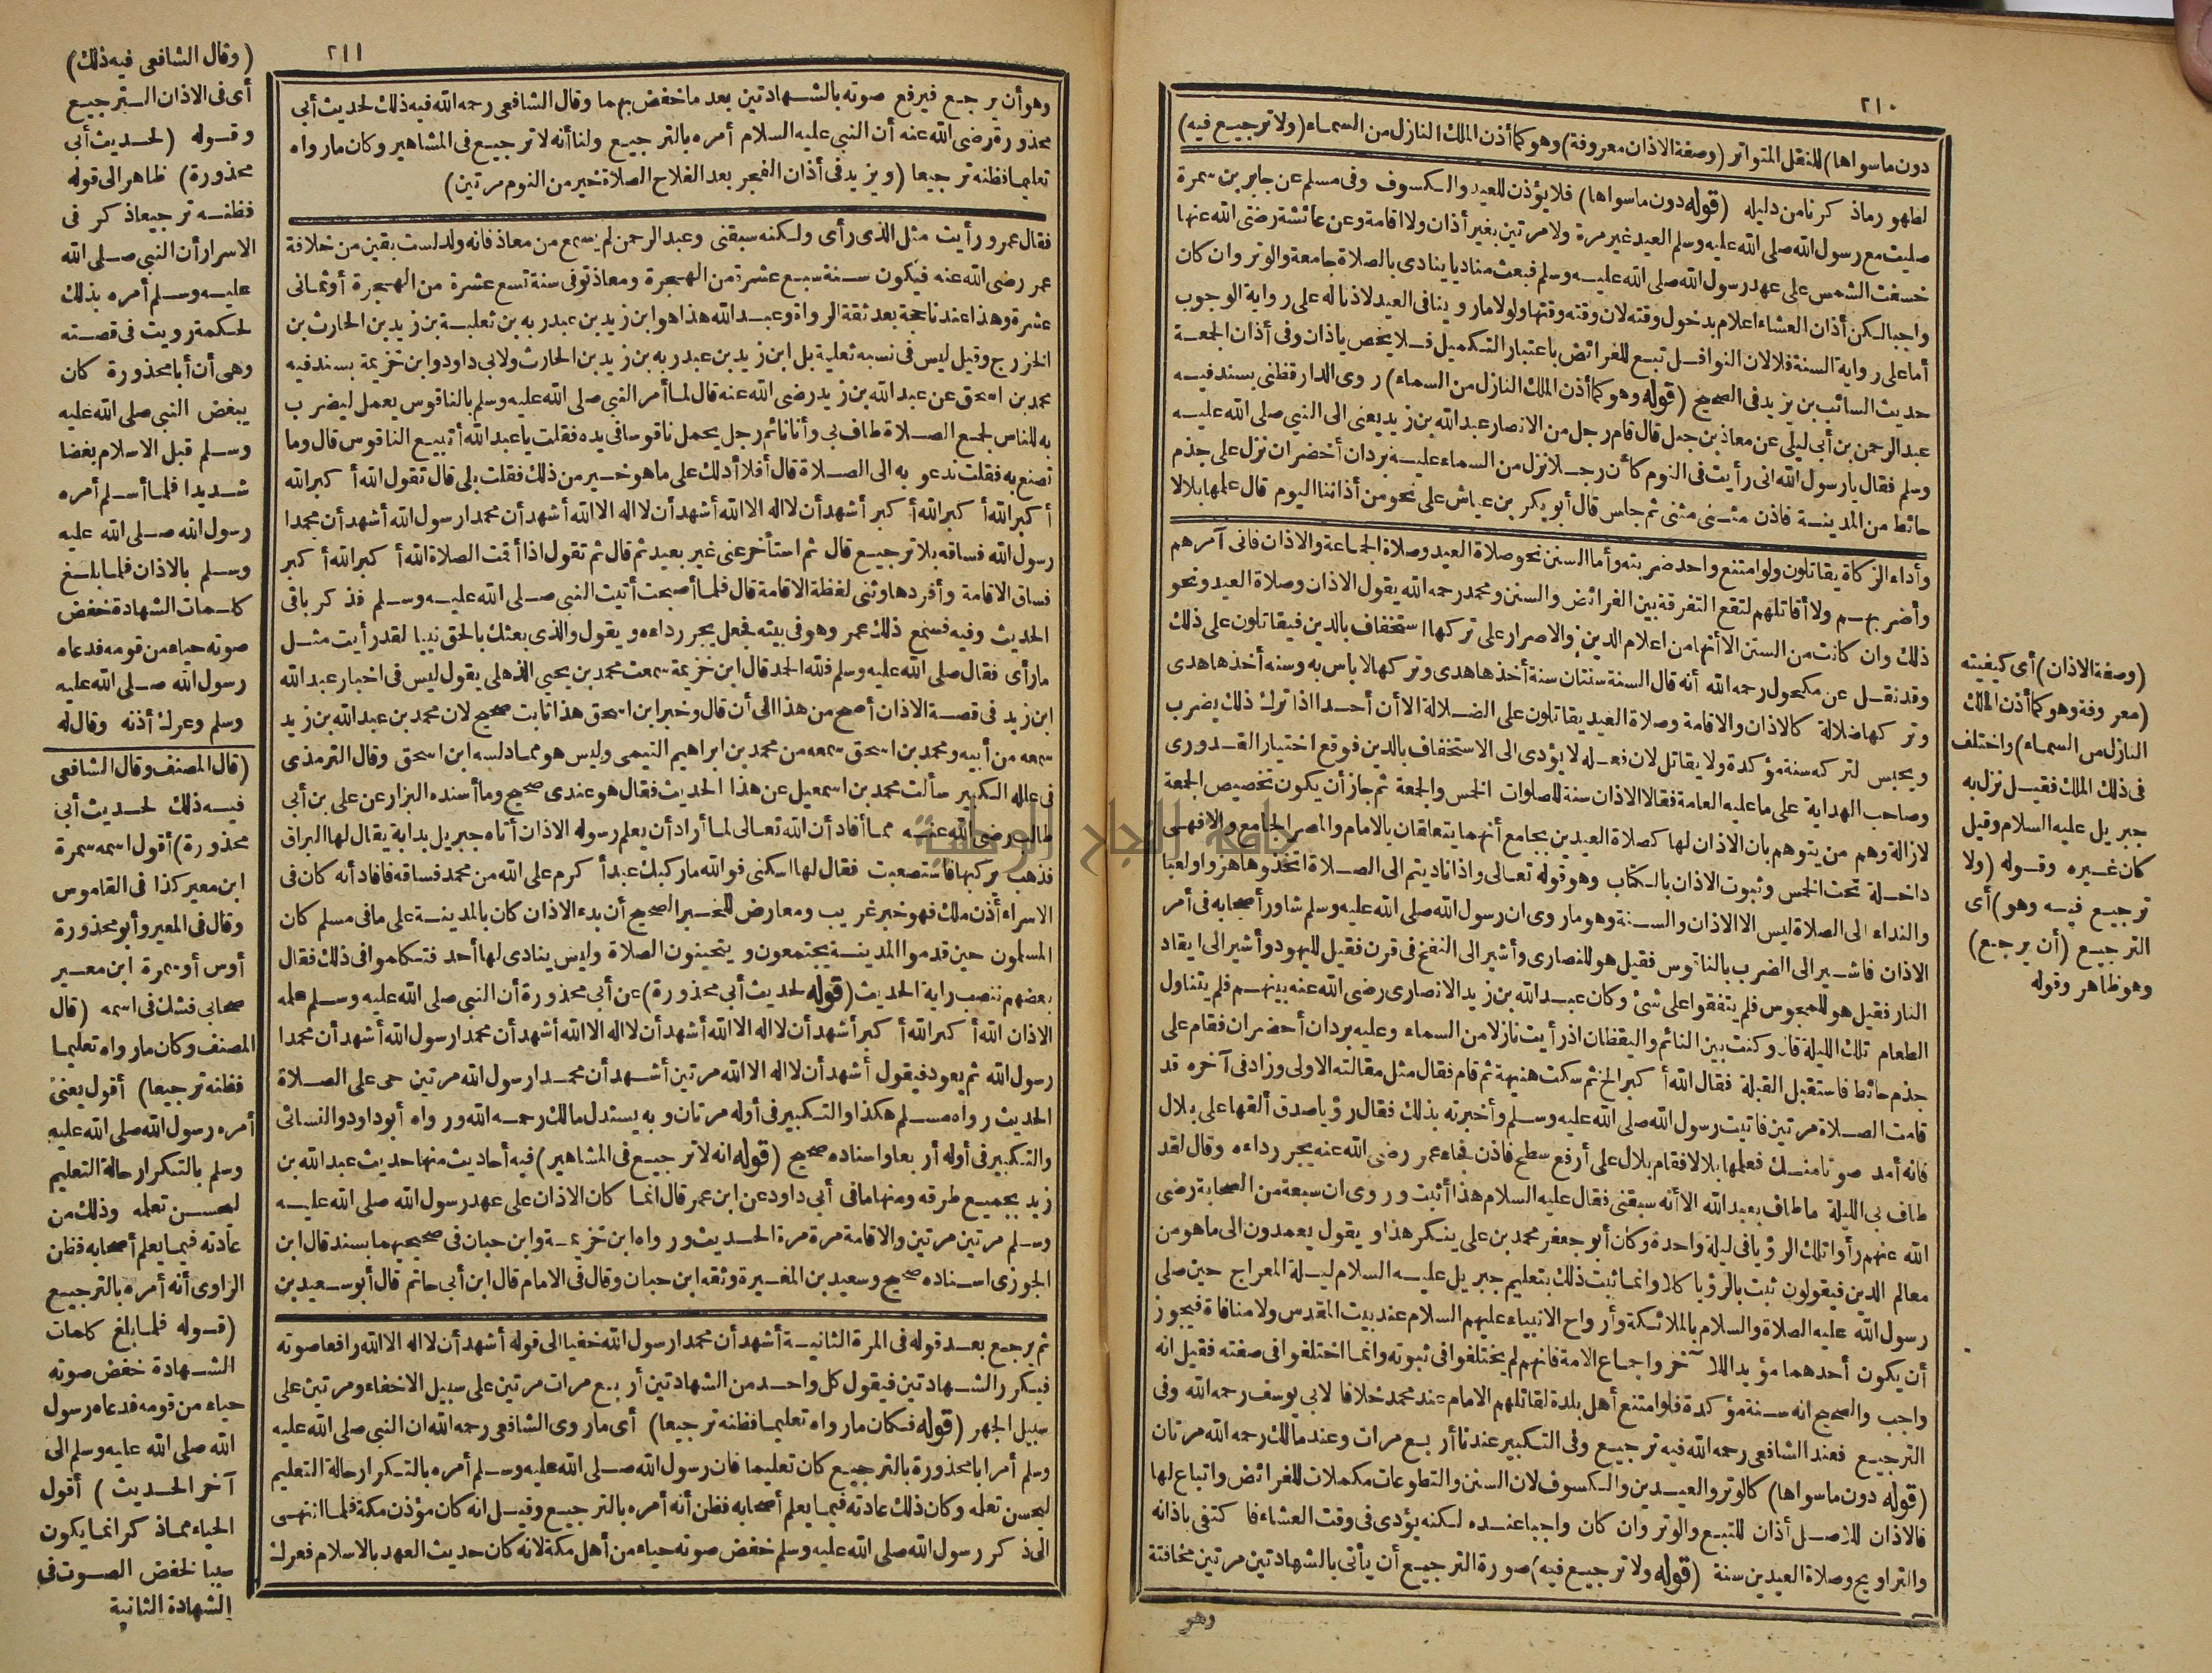 ٢١٠
دون ما سواها) للنقل المتواتر (وصفة الاذان معروفة) وهو كما أذن الملك النازل من السماء (ولا ترجيع فيه)
لظهور ماذكرنا من دليله (قوله دون ما سواها) فلا يؤذن للعيد والكسوف وفى مسلم عن جابر بن سمرة
صليت مع رسول الله صلى الله عليه وسلم العيد غير مرة ولا مرتين بغير أذان ولا اقامة وعن عائشة رضى الله عنها
خسفت الشمس على عهد رسول الله صلى الله عليه وسلم فبعث مناديا ينادى بالصلاة جامعة والوتر وان كان
واجبا لكن أذان العشاء اعلام بدخول وقته لان وقته وقتها ولولا مار وينا فى العيد لاذناله على رواية الوجوب
أما على رواية السنة فلا لان النوافل تبع للفرائض باعتبار التكميل فلا يخص باذان وفى أذان الجمعة
حديث السائب بن يزيد فى الصحيح (قوله وهو كما أذن الملك النازل من السماء) روى الدارقطنى بسند فيه
عبد الرحمن بن أبى ليلى عن معاذ بن جبل قال قام رجل من الانصار عبد الله بن زيد يعنى الى النبى صلى الله عليه
وسلم فقال يا رسول الله انى رأيت فى النوم كأن رجلا نزل من السماء عليه بردان أخضران نزل على جذم
حائط من المدينة فاذن مثنى مثنى ثم جلس قال أبو بكر بن عياش على نحو من أذاننا اليوم قال علمها بلالا
وأداء الزكاة يقاتلون ولو امتنع واحد ضربته وأما السنن نحو صلاة العيد وصلاة الجماعة والاذان فانى آمرهم
وأضربهم ولا أقاتلهم لتقع التفرقة بين الفرائض والسنن ومحمد رحمه الله يقول الاذان وصلاة العيد ونحو
ذلك وان كانت من السنن الا أنها من اعلام الدين والاصرار على تركها استخفاف بالدين فيقاتلون على ذلك
وقد نقل عن مكحول رحمه الله أنه قال السنة سنتان سنة أخذها هدى وتركها لا باس به وسنه أخذها هدى
وتركها ضلالة كالاذان والاقامة وصلاة العيد يقاتلون على الضلالة الا أن أحدا اذا ترك ذلك يضرب
ويحبس لتركه سنة مؤكدة ولا يقاتل لان فعله لا يؤدى الى الاستخفاف بالدين فوقع اختيار القدورى
وصاحب الهداية على ما عليه العامة فقالا الاذان سنة للصلوات الخمس والجمعة ثم جاز أن يكون تخصيص الجمعة
لازالة وهم من يتوهم بان الاذان لها كصلاة العيدين بجامع أنهما يتعلقان بالامام والمصر الجامع والافهى
داخلة تحت الخمس وثبوت الاذان بالكتاب وهو قوله تعالى واذا ناديتم الى الصلاة اتخذوها هزوا ولعبا
والنداء الى الصلاة ليس الا الاذان والسنة وهو ماروى ان رسول الله صلى الله عليه وسلم شاور أصحابه فى أمر
الاذان فاشير الى الضرب بالناقوس فقيل هو للنصارى وأشير الى النفخ فى قرن فقيل لليهود وأشير الى ايقاد
النار فقيل هو للمجوس فلم يتفقوا على شئ وكان عبد الله بن زيد الانصارى رضى الله عنه بينهم فلم يتناول
الطعام تلك الليلة قال وكنت بين النائم واليقظان اذ رأيت نازلا من السماء وعليه بردان أخضران فقام على
جذم حائط فاستقبل القبلة فقال الله أكبر الخ ثم سكت هنيهة ثم قام فقال مثل مقالته الاولى وزاد فى آخره قد
قامت الصلاة مرتين فاتيت رسول الله صلى الله عليه وسلم وأخبرته بذلك فقال رؤيا صدق ألقها على بلال
فانه أمد صوتا منك فعلمها بلالا فقام بلال على أرفع سطح فاذن فجاء عمر رضى الله عنه يجر رداءه وقال لقد
طاف بى الليلة ما طاف بعبد الله الا أنه سبقنى فقال عليه السلام هذا أثبت وروى ان سبعة من الصحابة رضى
الله عنهم رأوا تلك الرؤيا فى ليلة واحدة وكان أبو جعفر محمد بن على ينكر هذا ويقول يعمدون الى ما هو من
معالم الدين فيقولون ثبت بالرؤيا كلا وانما ثبت ذلك بتعليم جبريل عليه السلام ليلة المعراج حين صلى
رسول الله عليه الصلاة والسلام بالملائكة وأرواح الانبياء عليهم السلام عند بيت المقدس ولا منافاة فيجوز
أن يكون أحدهما مؤيدا للآخر واجماع الامة فانهم لم يختلفوا فى ثبوته وانما اختلفوا فى صفته فقيل انه
واجب والصحيح انه سنة مؤكدة فلوا متنع أهل بلدة لقاتلهم الامام عند محمد خلافا لابى يوسف رحمه الله وفى
الترجيع فعند الشافعى رحمه الله فيه ترجيع وفى التكبير عندنا أربع مرات وعند مالك رحمه الله مرتان
(قوله دون ما سواها) كالوتر والعيدين والكسوف لان السنن والتطوعات مكملات للفرائض واتباع لها
فالاذان للاصل أذان للتبع والوتر وان كان واجبا عنده لكنه يؤدى فى وقت العشاء فاكتفى باذانه
والتراويح وصلاة العيدين سنة (قوله ولا ترجيع فيه) صورة الترجيع أن يأتى بالشهادتين مرتين مخافتة
وهو
(وصفة الاذان) أى كيفيته
(معروفة وهو كما أذن الملك
النازل من السماء) واختلف
فى ذلك الملك فقيل نزل به
جبريل عليه السلام وقيل
كان غيره وقوله (ولا
ترجيع فيه وهو) أى
الترجيع (أن يرجع)
وهو ظاهر وقوله
٢١١
وهو أن يرجع فيرفع صوته بالشهادتين بعد ما خفض بهما وقال الشافعى رحمه الله فيه ذلك لحديث أبى
محذورة رضى الله عنه أن النبى عليه السلام أمره بالترجيع ولنا أنه لا ترجيع فى المشاهير وكان مار واه
تعليما فظنه ترجيعا (ويزيد فى أذان الفجر بعد الفلاح الصلاة خير من النوم مرتين)
فقال عمر ورأيت مثل الذى رأى ولكنه سبقنى وعبد الرحمن لم يسمع من معاذ فانه ولد لست بقين من خلافة
عمر رضى الله عنه فيكون سنة سبع عشرة من الهجرة ومعاذ توفى سنة تسع عشرة من الهجرة أو ثمانى
عشرة وهذا عندنا حجة بعد ثقة الرواة وعبد الله هذا هو ابن زيد بن عبد ربه بن ثعلبة بن زيد بن الحارث بن
الخزرج وقيل ليس فى نسبه ثعلبة بل ابن زيد بن عبد ربه بن زيد بن الحارث ولابى داود وابن خزيمة بسند فيه
محمد بن اسحق عن عبد الله بن زيد رضى الله عنه قال لما أمر النبى صلى الله عليه وسلم بالناقوس يعمل ليضرب
به للناس لجمع الصلاة طاف بى وأنا نائم رجل يحمل ناقوسا فى يده فقلت يا عبد الله أتبيع الناقوس قال وما
تصنع به فقلت ندعو به الى الصلاة قال أفلا أدلك على ما هو خير من ذلك فقلت بلى قال تقول الله أكبر الله
أكبر الله أكبر الله أكبر أشهد أن لا اله الا الله أشهد أن لا اله الا الله أشهد أن محمدا رسول الله أشهد أن محمدا
رسول الله فساقه بلا ترجيع قال ثم استأخر عنى غير بعيد ثم قال ثم تقول اذا أقمت الصلاة الله أكبر الله أكبر
فساق الاقامة وأفردها وثنى لفظة الاقامة قال فلما أصبحت أتيت النبى صلى الله عليه وسلم فذكر باقى
الحديث وفيه فسمع ذلك عمر وهو فى بيته فجعل يجر رداءه ويقول والذى بعثك بالحق نبيا لقد رأيت مثل
مارأى فقال صلى الله عليه وسلم فلله الحمد قال ابن خزيمة سمعت محمد بن يحيى الذهلى يقول ليس فى اخبار عبد الله
ابن زيد فى قصة الاذان أصح من هذا الى أن قال وخبر ابن اسحق هذا ثابت صحيح لان محمد بن عبد الله بن زيد
سمعه من أبيه ومحمد بن اسحق سمعه من محمد بن ابراهيم التيمى وليس هو مما دلسه ابن اسحق وقال الترمذى
فى علله الكبير سألت محمد بن اسمعيل عن هذا الحديث فقال هو عندى صحيح وما أسنده البزار عن على بن أبى
طالب رضى الله عنه مما أفاد أن الله تعالى لما أراد أن يعلم رسوله الاذان أتاه جبريل بدابة يقال لها البراق
فذهب يركبها فاستصعبت فقال لها اسكنى فوالله ما ركبك عبد أكرم على الله من محمد فساقه فافاد أنه كان فى
الاسراء أذن ملك فهو خبر غريب ومعارض للخبر الصحيح أن بدء الاذان كان بالمدينة على ما فى مسلم كان
المسلمون حين قدموا المدينة يجتمعون ويتحينون الصلاة وليس ينادى لها أحد فتكلموا فى ذلك فقال
بعضهم ننصب راية الحديث (قوله لحديث أبى محذورة) عن أبى محذورة أن النبى صلى الله عليه وسلم علمه
الاذان الله أكبر الله أكبر أشهد أن لا اله الا الله أشهد أن لا اله الا الله أشهد أن محمدا رسول الله أشهد أن محمدا
رسول الله ثم يعود فيقول أشهد أن لا اله الا الله مرتين أشهد أن محمدا رسول الله مرتين حى على الصلاة
الحديث رواه مسلم هكذا والتكبير فى أوله مرتان وبه يستدل مالك رحمه الله ورواه أبو داود والنسائى
والتكبير فى أوله أربعا واسناده صحيح (قوله انه لا ترجيع فى المشاهير) فيه أحاديث منها حديث عبد الله بن
زيد بجميع طرقه ومنها ما فى أبى داود عن ابن عمر قال انما كان الاذان على عهد رسول الله صلى الله عليه
وسلم مرتين مرتين والاقامة مرة مرة الحديث ورواه ابن خزيمة وابن حبان فى صحيحيهما بسند قال ابن
الجوزى اسناده صحيح وسعيد بن المغيرة وثقه ابن حبان وقال فى الامام قال ابن أبى حاتم قال أبو سعيد بن
ثم يرجع بعد قوله فى المرة الثانية أشهد أن محمدا رسول الله خفيا الى قوله أشهد أن لا اله الا الله رافعا صوته
فيكرر الشهادتين فيقول كل واحد من الشهادتين أربع مرات مرتين على سبيل الاخفاء ومرتين على
سبيل الجهر (قوله فكان مارواه تعليما فظنه ترجيعا) أى ماروى الشافعى رحمه الله ان النبى صلى الله عليه
وسلم أمر ابا محذورة بالترجيع كان تعليما فان رسول الله صلى الله عليه وسلم أمره بالتكرار حالة التعليم
ليحسن تعلمه وكان ذلك عادته فيما يعلم أصحابه فظن أنه أمره بالترجيع وقيل انه كان مؤذن مكة فلما انتهى
الى ذكر رسول الله صلى الله عليه وسلم خفض صوته حياء من أهل مكة لانه كان حديث العهد بالاسلام فعرك
(وقال الشافعى فيه ذلك)
أى فى الاذان الترجيع
وقوله (لحديث أبى
محذورة) ظاهر الى قوله
فظنه ترجيعا ذكر فى
الاسرار أن النبى صلى الله
عليه وسلم أمره بذلك
لحكمة رويت فى قصته
وهى أن أبا محذورة كان
يبغض النبى صلى الله عليه
وسلم قبل الاسلام بغضا
شديدا فلما أسلم أمره
رسول الله صلى الله عليه
وسلم بالاذان فلما بلغ
كلمات الشهادة خفض
صوته حياء من قومه فدعاه
رسول الله صلى الله عليه
وسلم وعرك أذنه وقال له
(قال المصنف وقال الشافعى
فيه ذلك لحديث أبى
محذورة) أقول اسمه سمرة
ابن معير كذا فى القاموس
وقال فى المعير وأبو محذورة
أوس أو سمرة ابن معير
صحابى فشك فى اسمه (قال
المصنف وكان مارواه تعليما
فظنه ترجيعا) أقول يعنى
أمره رسول الله صلى الله عليه
وسلم بالتكرار حالة التعليم
ليحسن تعلمه وذلك من
عادته فيما يعلم أصحابه فظن
الراوى أنه أمره بالترجيع
(قوله فلما بلغ كلمات
الشهادة خفض صوته
حياء من قومه فدعاه رسول
الله صلى الله عليه وسلم الى
آخر الحديث) أقول
الحياء مما ذكر انما يكون
سببا لخفض الصوت فى
الشهادة الثانية
جامعة النجاح الوطنية